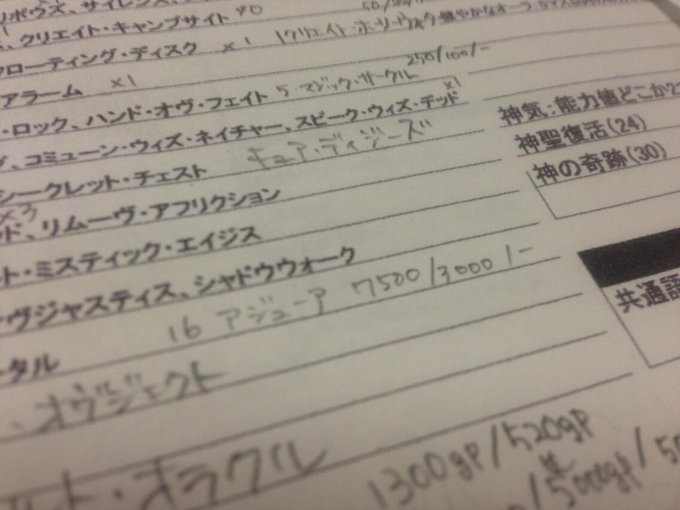 リポウズ、サイレンス、
クリエイト・キャンプサイト ×0 50/
フローティング・ディスク ×1
アラーム ×1
・ロック、ハンド・オヴ・フェイト 5・マジック・サークル 250/100/-
コミューン・ウィズ・ネイチャー、スピーク・ウィズ・デッド ×1
キュア・ディジーズ
シークレット・チェスト
×3
ド、リムーヴ・アフリクション
ト・ミスティック・エイジス
ヴジャスティス、シャドウウォーク
16 アジューア 7500/3000/-
ータル
・オヴジェクト
ト・オラクル
1300gp/520gp
/5000gp/50
神気:能力値どこか2
神聖復活(24)
神の奇跡(30)
共通語